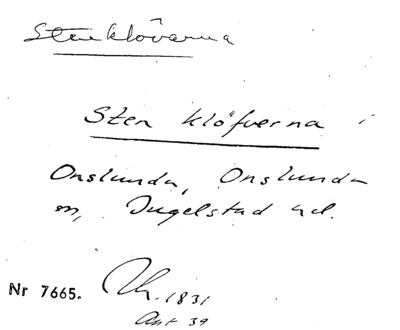 Stenklövarna
Sten klöfverna i
Onslunda, Onslunda
sn, Ingelstad hd.
Nr 7665. Th. 1831
Ant 39